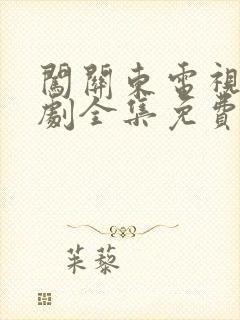 闖關東電視
劇全集免費
茱藜